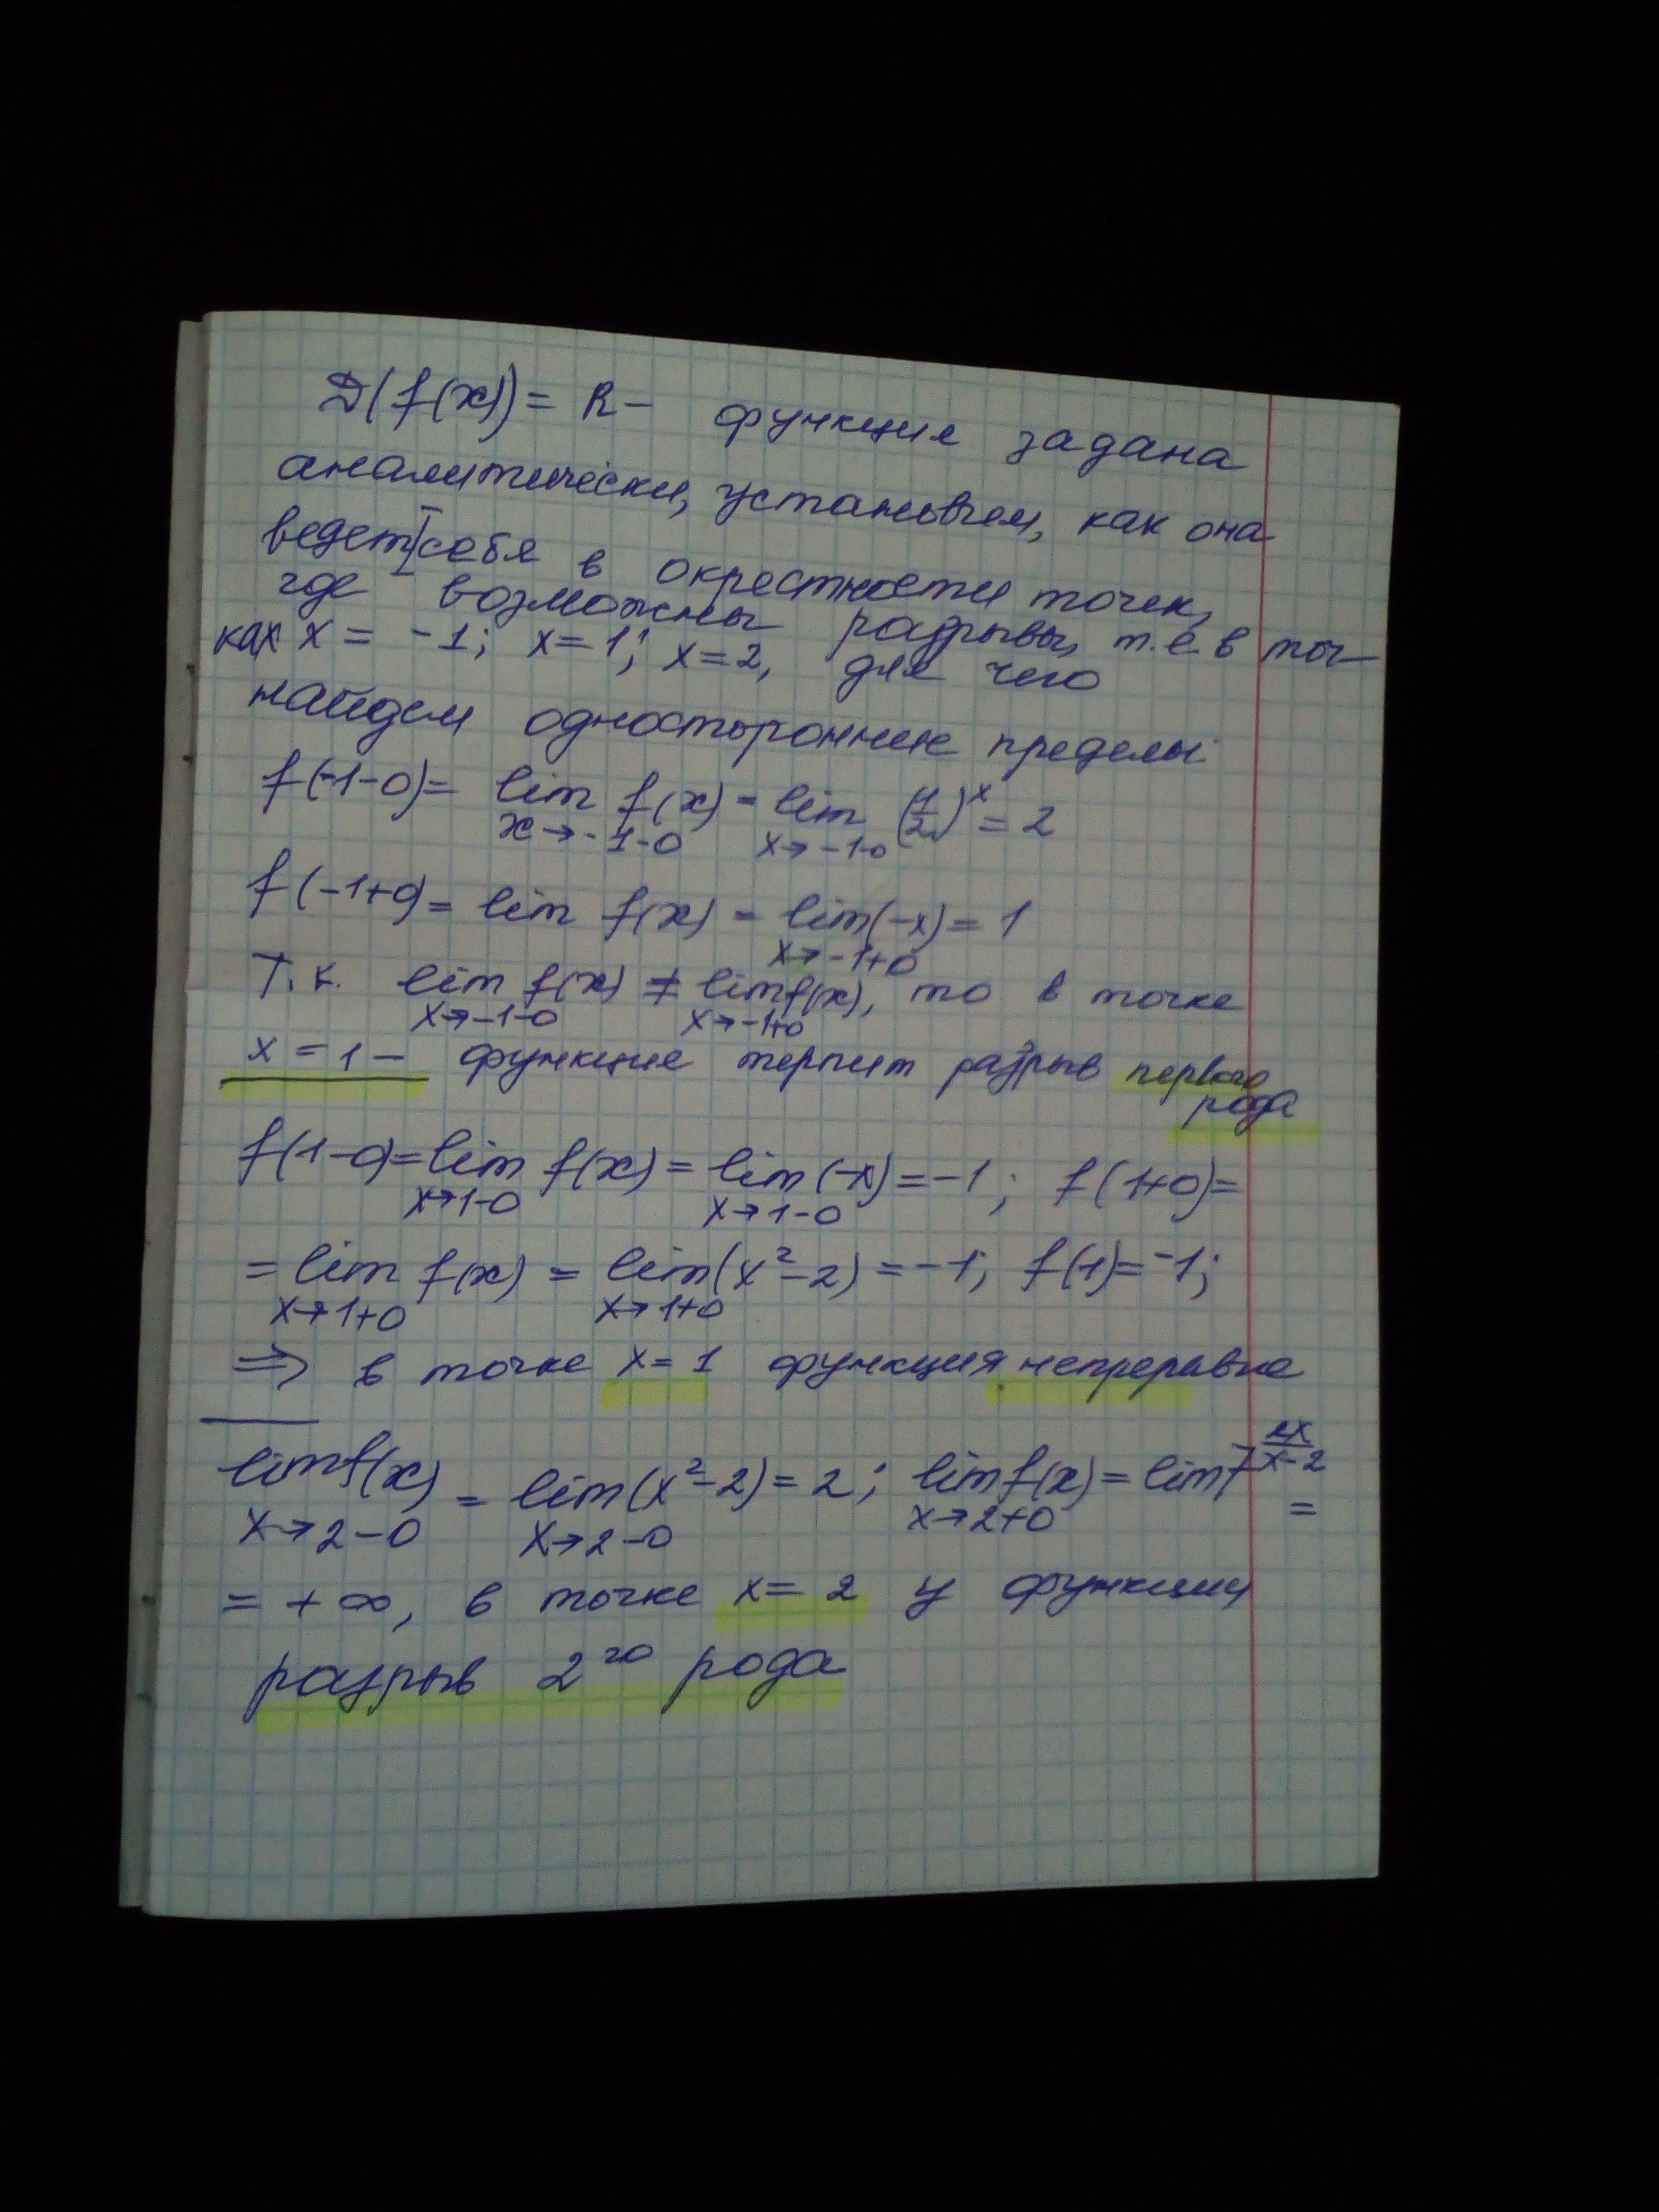 D(f(x)) = R - функция задана
аналитически, установим, как она
ведет себя в окрестности точек,
где возможны разрывы, т.е. в точ-
ках x = -1; x=1; x=2, для чего
найдем односторонние пределы
f(-1-0)= lim f(x) = lim (1/2)^x = 2
x→-1-0 x→-1-0
f(-1+0)= lim f(x) = lim(-x) = 1
x→-1+0
Т.к. lim f(x) ≠ lim f(x), то в точке
x→-1-0 x→-1+0
x = 1 - функция терпит разрыв первого
рода
f(1-0)=lim f(x) = lim(-x)=-1; f(1+0)=
x→1-0 x→1-0
= lim f(x) = lim(x²-2) = -1; f(1)=-1;
x→1+0 x→1+0
⇒ в точке x=1 функция непрерывна
lim f(x) = lim(x²-2)=2; lim f(x) = lim 7^(2x/(x-2)) =
x→2-0 x→2-0 x→2+0
= +∞, в точке x=2 у функции
разрыв 2го рода